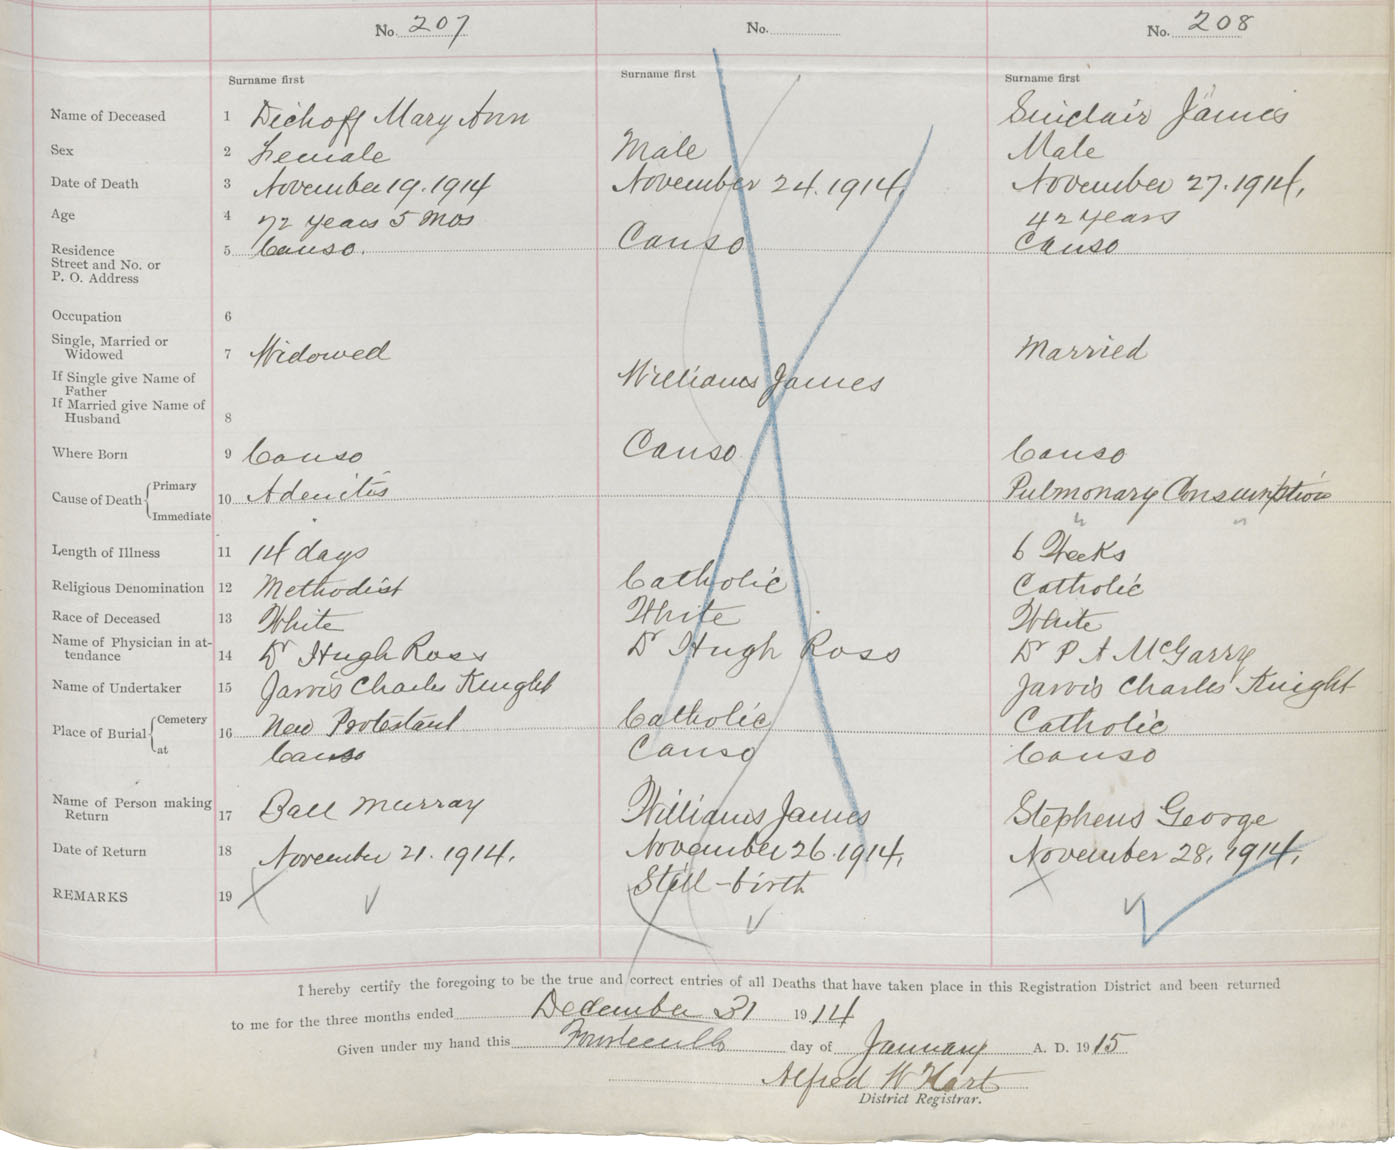 No. 207 No. No. 208
Surname first Surname first Surname first
Name of Deceased 1 Dichoff Mary Ann Sinclair James
Sex 2 Female Male Male
Date of Death 3 November 19. 1914 November 24. 1914. November 27. 1914.
Age 4 72 years 5 Mos 42 years
Residence 5 Canso. Canso Canso
Street and No. or
P. O. Address
Occupation 6
Single, Married or
Widowed 7 Widowed Married
If Single give Name of
Father Williams James
If Married give Name of
Husband 8
Where Born 9 Canso Canso Canso
Cause of Death Primary 10 Adenitis Pulmonary Consumption
Immediate " "
Length of Illness 11 14 days 6 Weeks
Religious Denomination 12 Methodist Catholic Catholic
Race of Deceased 13 White White White
Name of Physician in at-
tendance 14 Dr Hugh Ross Dr Hugh Ross Dr P A McGarry
Name of Undertaker 15 Jarvis Charles Knight Jarvis Charles Knight
Place of Burial Cemetery 16 New Protestant Catholic Catholic
at Canso Canso Canso
Name of Person making
Return 17 Ball Murray Williams James Stephens George
Date of Return 18 November 21. 1914. November 26. 1914. November 28, 1914.
REMARKS 19 Still-birth
I hereby certify the foregoing to be the true and correct entries of all Deaths that have taken place in this Registration District and been returned
to me for the three months ended December 31 1914
Given under my hand this Fourteenth day of January A. D. 1915
Alfred W Hart
District Registrar.